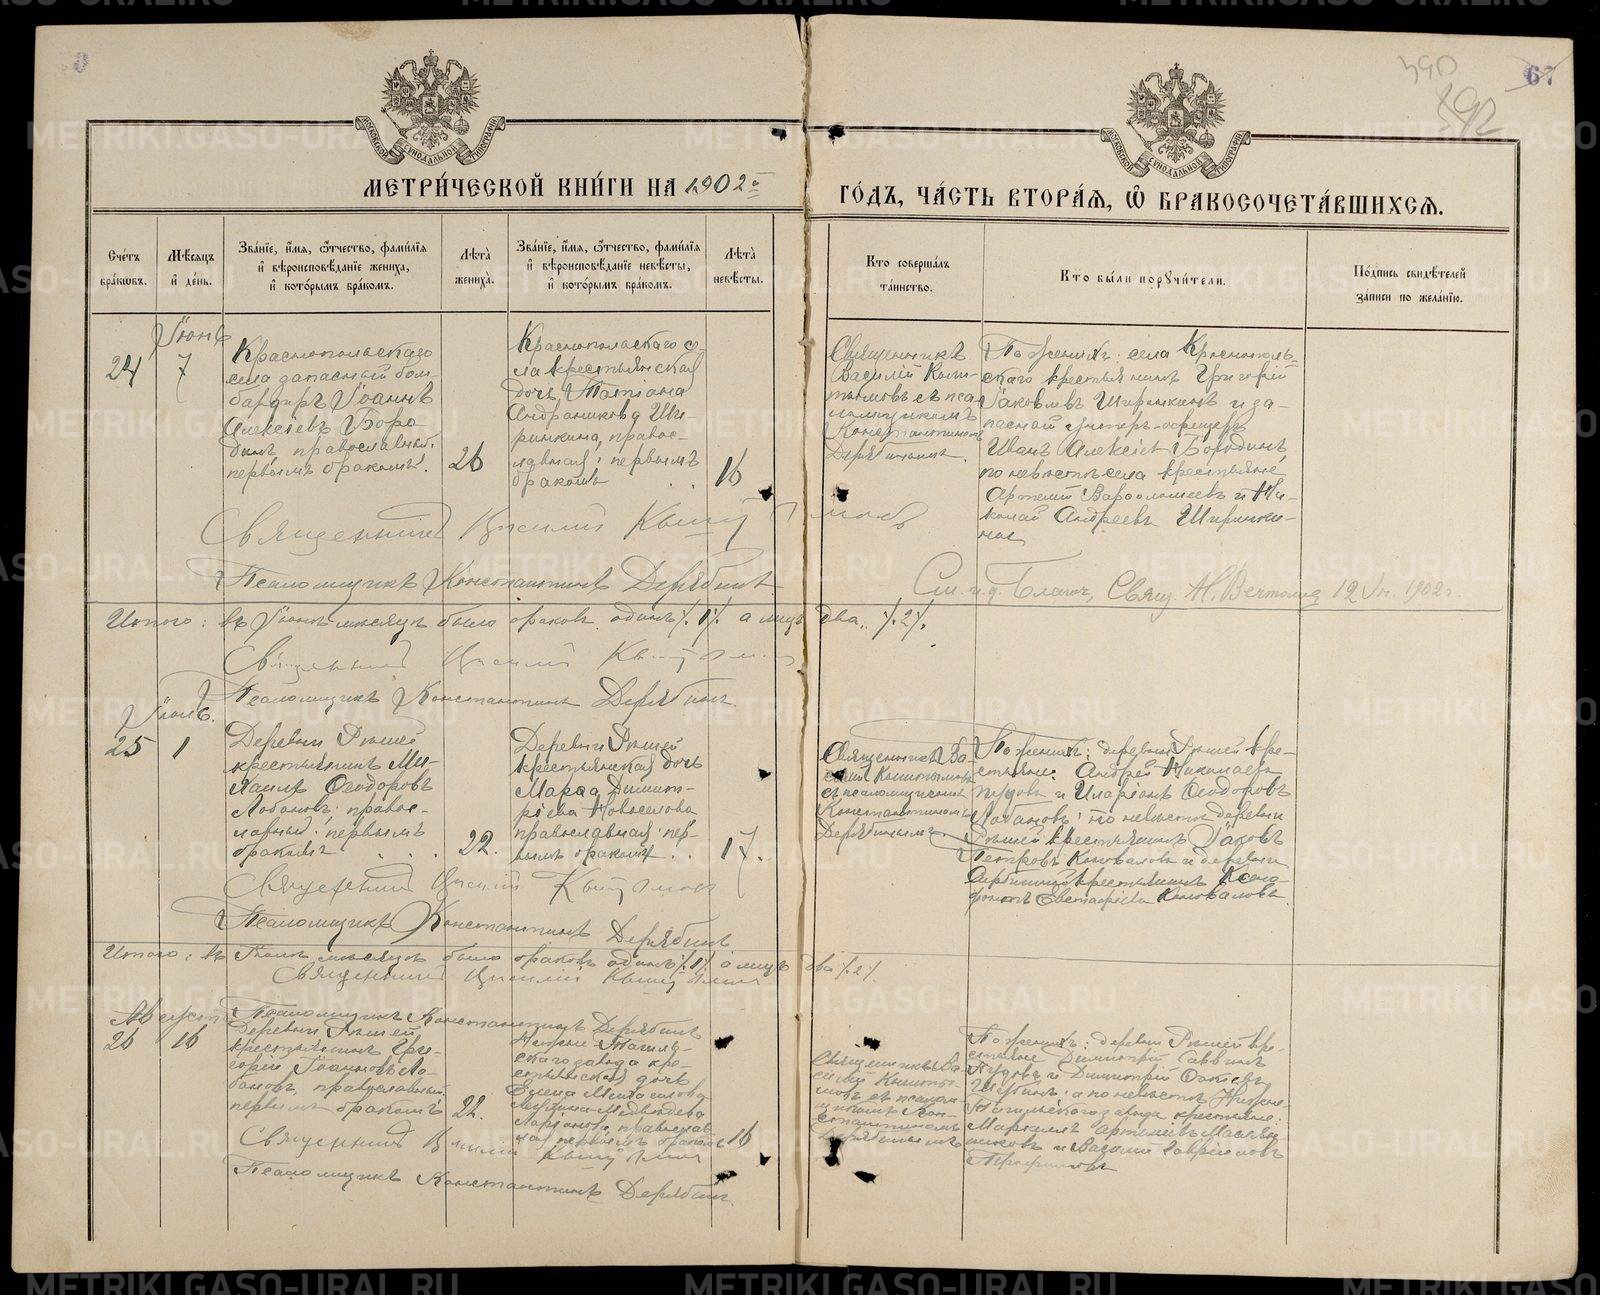 390
392
67
МОСКОВСКОЙ СУНОДАЛЬНОЙ ТИПОГРАФІИ
МОСКОВСКОЙ СУНОДАЛЬНОЙ ТИПОГРАФІИ
МЕТРИ́ЧЕСКОЙ КНИ́ГИ НА 1902й
ГО́ДЪ, ЧА́СТЬ ВТОРА́Ѧ, Ѽ БРАКОСОЧЕТА́ВШИХСѦ.
Сче́тъ бра́кωвъ.
Мѣ́сѧцъ и҆ де́нь.
Зва́нїе, и҆́мѧ, ѻ҆́тчество, фами́лїѧ и҆ вѣроисповѣ́данїе жениха̀, и҆ кото́рымъ бра́комъ.
Лѣ́та жениха̀.
Зва́нїе, и҆́мѧ, ѻ҆́тчество, фами́лїѧ и҆ вѣроисповѣ́данїе невѣ́сты, и҆ кото́рымъ бра́комъ.
Лѣ́та невѣ́сты.
Кто̀ соверша́лъ та́инство.
Кто̀ бы́ли порꙋчи́тели.
По́дпись свидѣ́телей за́писи по жела́нїю.
Іюнь
24
7
Краснопольскаго
села запасный бом-
бардиръ Іоаннъ
Алексіевъ Боро
динъ, православный,
первымъ бракомъ.
26
Краснопольскаго се-
ла крестьянская
дочь Татіана
Андроникова Ши-
ринкина, правос-
лавная, первымъ
бракомъ
16
Священникъ
Василій Кыш-
тымовъ съ пса-
ломщикомъ
Константиномъ
Дерябинымъ.
По женихѣ: села Краснополь-
скаго крестьянинъ Григорій
Іаковлевъ Ширинкинъ и за-
пасный унтеръ-офицеръ
Иванъ Алексіевъ Бородинъ,
по невѣстѣ села крестьяне
Артемій Варѳоломеевъ и Ни-
колай Андреевъ Ширинки-
ны
Священникъ Василій Кыштымовъ
Псаломщикъ Константинъ Дерябинъ
См. и д. Благоч. Свящ. 12 Ін. 1902 г.
Итого: въ Іюнѣ мѣсяцѣ было браковъ одинъ /.1/. а лицъ два. /.2/.
Священникъ Василій Кыштымовъ
Псаломщикъ Константинъ Дерябинъ.
Іюль.
25
1
Деревни Рѣшей
крестьянинъ Ми-
хаилъ Ѳеодоровъ
Лобановъ, правос-
лавный, первымъ
бракомъ
22.
Деревни Рѣшей
крестьянская дочь
Марѳа Димит-
ріева Новоселова
православная, пер-
вымъ бракомъ
17.
Священникъ Ва-
силій Кыштымовъ
съ псаломщикомъ
Константиномъ
Дерябинымъ.
По женихѣ: деревни Рѣшей кре-
стьяне Андрей Николаевъ
Пудовъ и Иларіонъ Ѳеодоровъ
Лобановъ; по невѣстѣ деревни
Рѣшей крестьянинъ Іаковъ
Петровъ Коновалов и деревни
крестьянинъ Ксено-
фонтъ Евстафіевъ Коноваловъ
Священникъ Василій Кыштымовъ
Псаломщикъ Константинъ Дерябинъ
Итого: въ Іюлѣ мѣсяцѣ было браковъ одинъ /.1/. а лицъ два /.2/.
Священникъ Василій Кыштымовъ
Псаломщикъ Константинъ Дерябинъ
Августъ
26
16
Деревни Рѣшей
крестьянинъ Гри-
горій Іоанновъ Ло-
бановъ, православный
первымъ бракомъ
22.
Нижне-Тагиль-
скаго завода кре-
стьянская дочь
Елена
Ларіонова, православ-
ная, первымъ бракомъ
16
Священникъ Ва-
силій Кышты-
мовъ съ псалом-
щикомъ Кон-
стантиномъ
Дерябинымъ
По женихѣ: деревни Рѣшей кре-
стьяне Димитрій Саввинъ
Пудовъ и Димитрій
а по невѣстѣ Нижне-
Тагильскаго завода крестьяне:
Маркелъ Артеміевъ Маслен-
никовъ и Василій Гавріиловъ
Священникъ Василій Кыштымовъ
Псаломщикъ Константинъ Дерябинъ.
METRIKI.GASO-URAL.RU